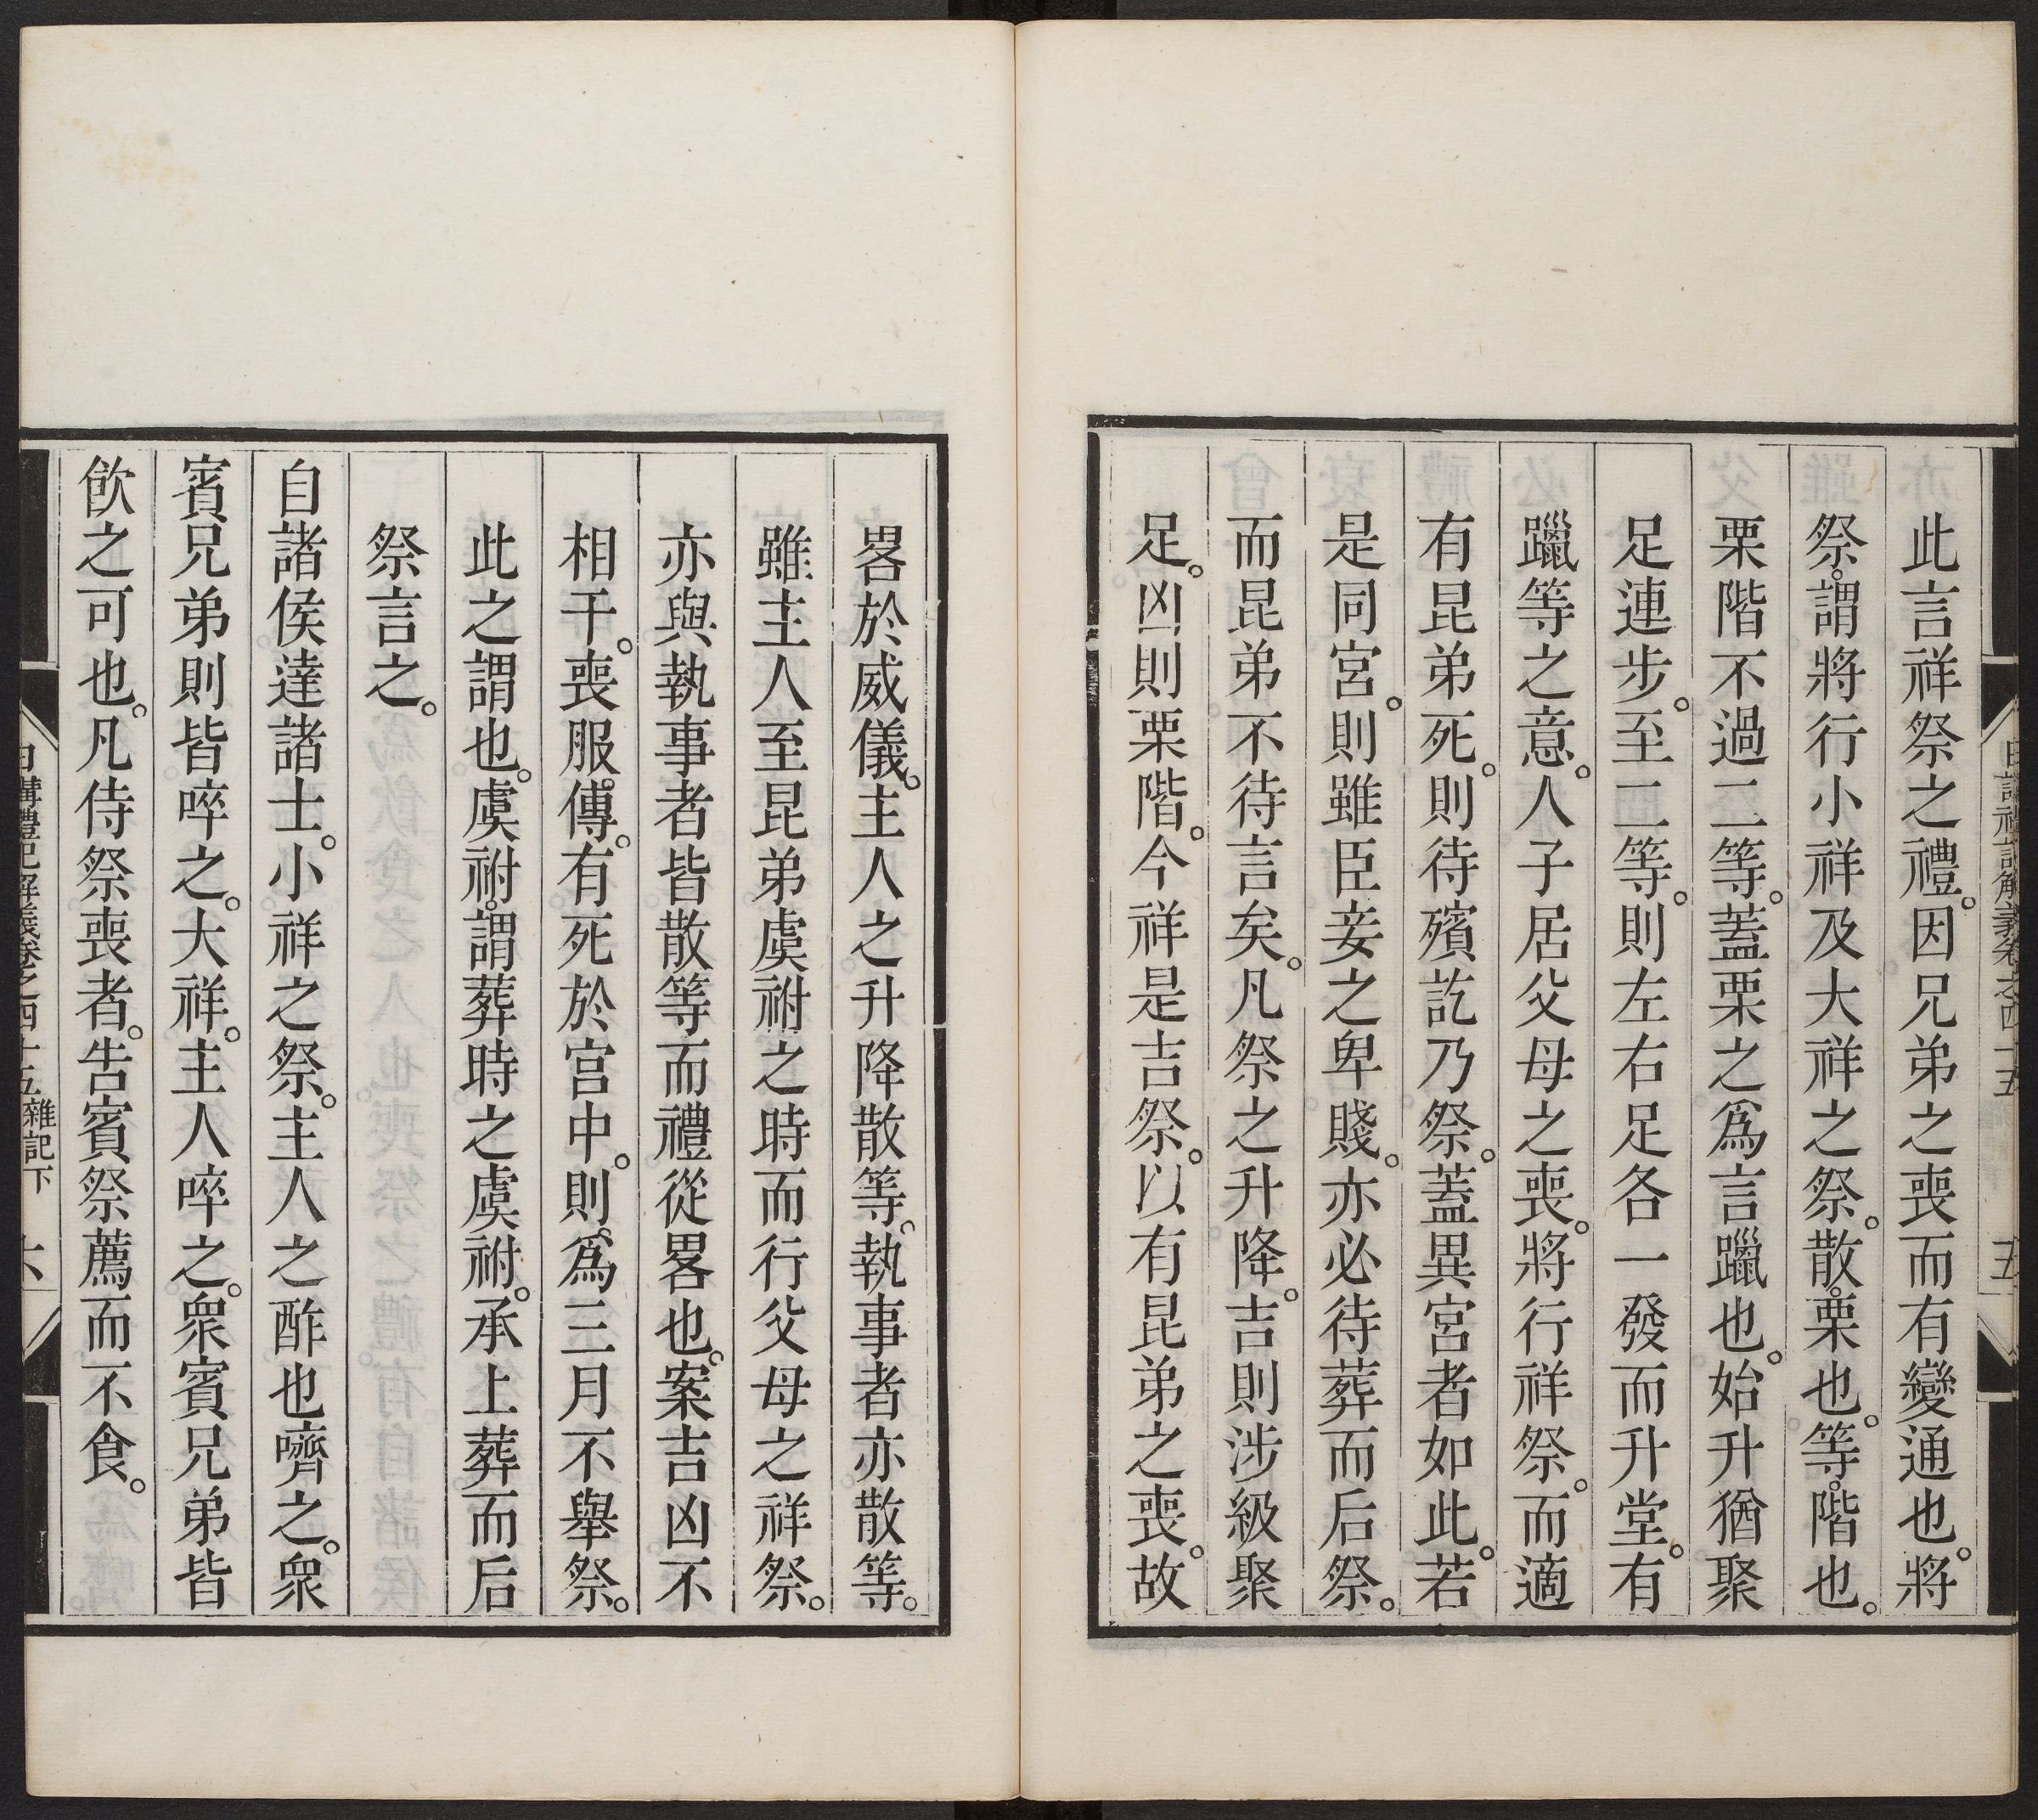 此言祥祭之禮。因兄弟之喪而有變通也。將
祭。謂將行小祥及大祥之祭。散。栗也。等。階也。
栗階不過二等。蓋栗之爲言躐也。始升猶聚
足連步。至二等。則左右足各一發而升堂。有
躐等之意。人子居父母之喪。將行祥祭。而適
有昆弟死。則待殯訖乃祭。蓋異宮者如此。若
是同宮。則雖臣妾之卑賤。亦必待葬而后祭。
而昆弟不待言矣。凡祭之升降。吉則涉級聚
足。凶則栗階。今祥是吉祭。以有昆弟之喪。故
畧於威儀。主人之升降散等。執事者亦散等。
雖主人至昆弟虞祔之時而行父母之祥祭。
亦與執事者皆散等而禮從畧也。案吉凶不
相干。喪服。傳。有死於宮中。則。爲三月不舉祭。
此之謂也。虞祔。謂葬時之虞祔。承上葬而后
祭言之。
自諸侯達諸士。小祥之祭。主人之酢也嚌之。衆
賓兄弟則皆啐之。大祥。主人啐之。衆賓兄弟皆
飲之可也。凡侍祭喪者。告賓祭薦而不食。
日講禮記解義卷之四十五 雜記下 六